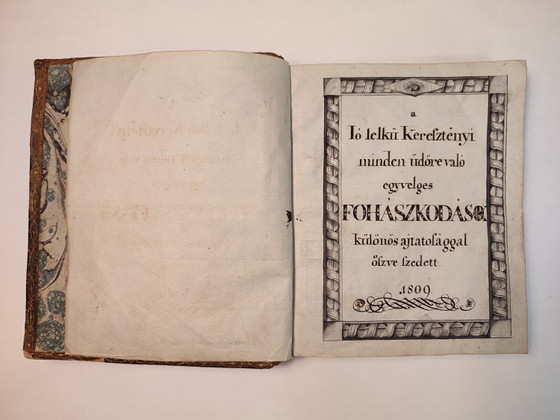 a
Jó lelkű Keresztényi
minden üdőre való
egyvelges
FOHÁSZKODÁSOK
különös ajtatosággal
öszve szedett.
1809